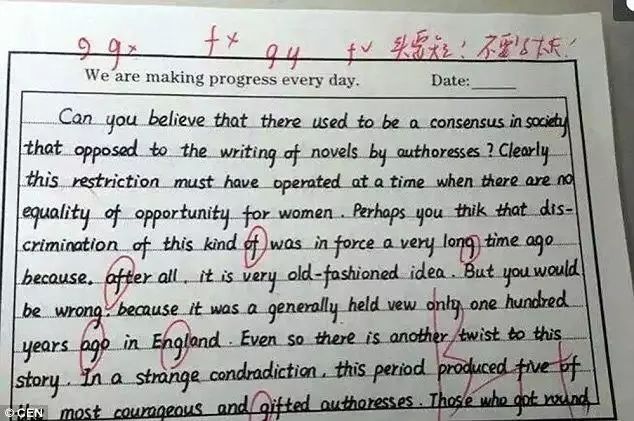 g g× f× g y f✓ 头 ! 不要 !
We are making progress every day. Date:
Can you believe that there used to be a consensus in society
that opposed to the writing of novels by authoresses ? Clearly
this restriction must have operated at a time when there are no
equality of opportunity for women . Perhaps you thik that dis-
crimination of this kind of was in force a very long time ago
because, after all , it is very old-fashioned idea . But you would
be wrong, because it was a generally held vew only one hundred
years ago in England . Even so there is another twist to this
story . In a strange condradiction , this period produced five of
most courageous and gifted authoresses . Those who got round
© CEN